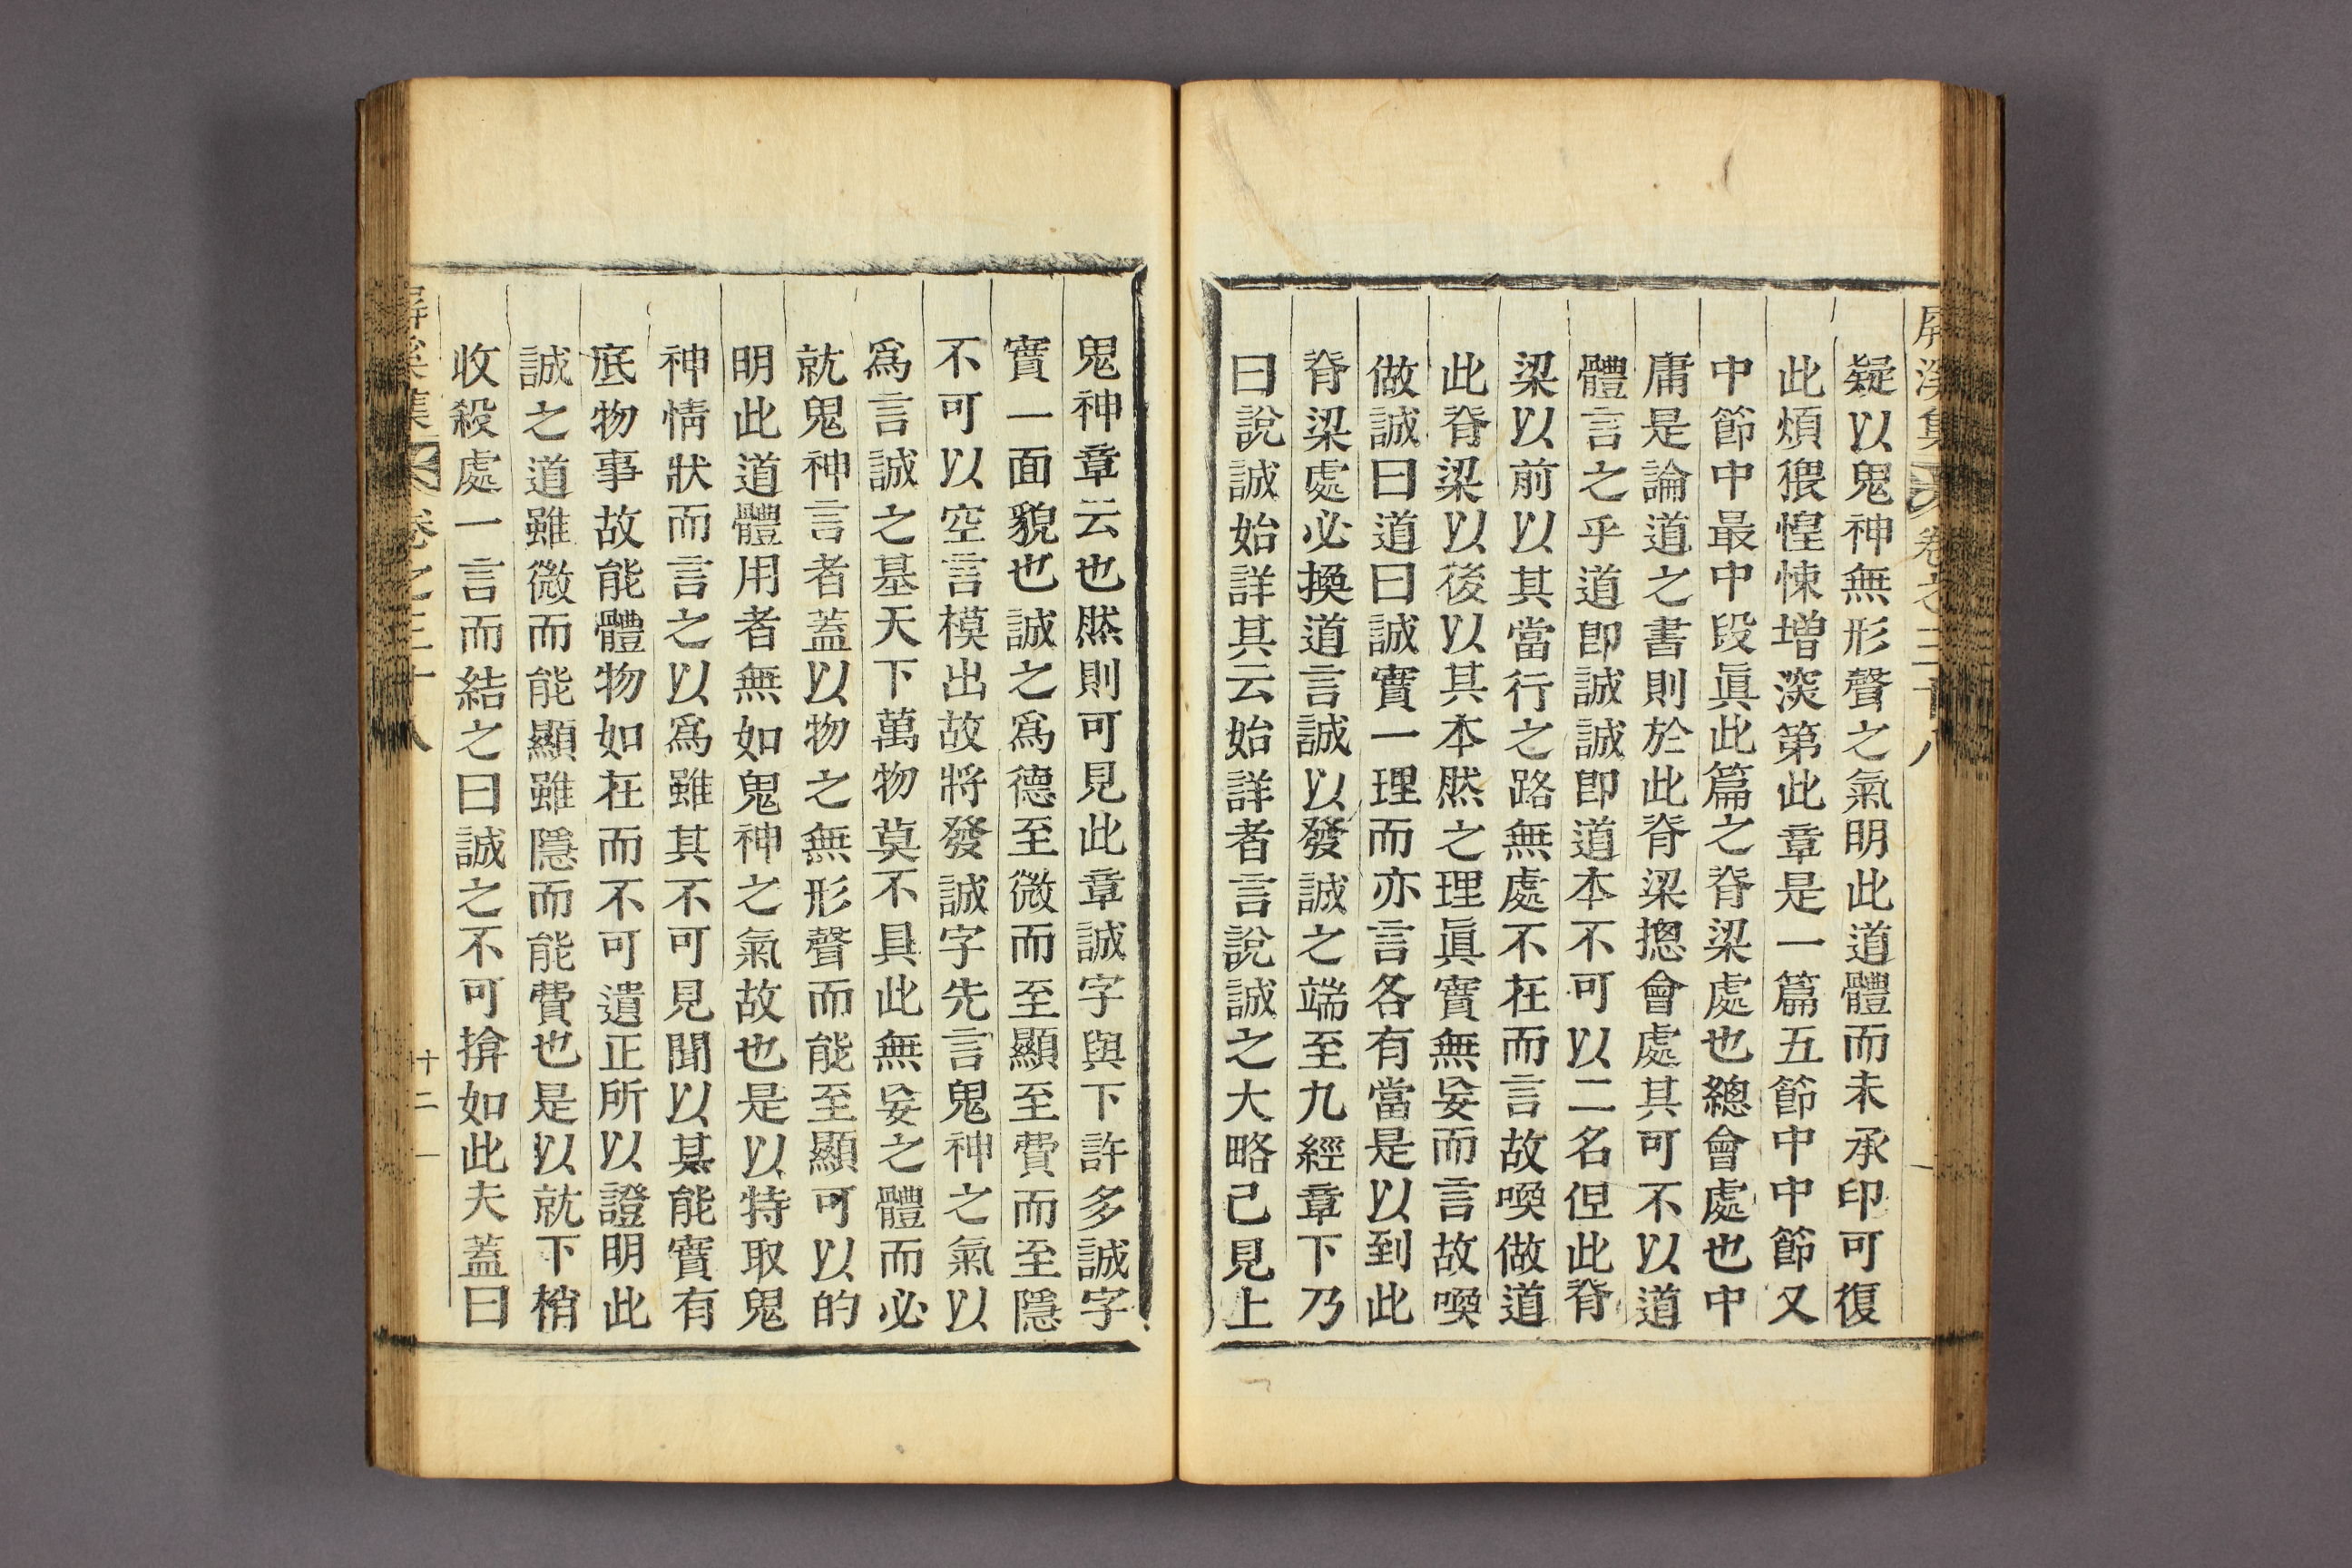 屛溪集 卷之三十八
疑以鬼神無形聲之氣明此道體而未承印可復
此煩猥惶悚增深第此章是一篇五節中中節又
中節中最中段眞此篇之脊梁處也總會處也中
庸是論道之書則於此脊梁摠會處其可不以道
體言之乎道卽誠誠卽道本不可以二名但此脊
梁以前以其當行之路無處不在而言故喚做道
此脊梁以後以其本然之理眞實無妄而言故喚
做誠曰道曰誠實一理而亦言各有當是以到此
脊梁處必換道言誠以發誠之端至九經章下乃
曰說誠始詳其云始詳者言說誠之大略已見上
鬼神章云也然則可見此章誠字與下許多誠字
實一面貌也誠之爲德至微而至顯至費而至隱
不可以空言模出故將發誠字先言鬼神之氣以
爲言誠之基天下萬物莫不具此無妄之體而必
就鬼神言者蓋以物之無形聲而能至顯可以的
明此道體用者無如鬼神之氣故也是以特取鬼
神情狀而言之以爲雖其不可見聞以其能實有
底物事故能體物如在而不可遺正所以證明此
誠之道雖微而能顯雖隱而能費也是以就下梢
收殺處一言而結之曰誠之不可揜如此夫蓋曰
屛溪集 卷之三十八 十二